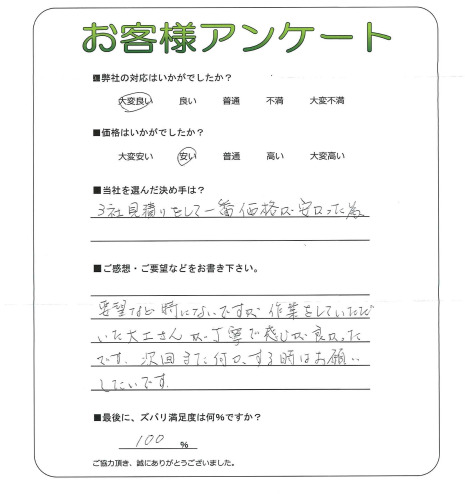 お客様アンケート
■弊社の対応はいかがでしたか？
大変良い 良い 普通 不満 大変不満
■価格はいかがでしたか？
大変安い 安い 普通 高い 大変高い
■当社を選んだ決め手は？
3社見積りをして一番価格が安かった為
■ご感想・ご要望などをお書き下さい。
要望など特にないですが 作業をしていただ
いた大工さんが丁寧で感じが良かった
です。次回また何かする時はお願い
したいです。
■最後に、ズバリ満足度は何％ですか？
100 ％
ご協力頂き、誠にありがとうございました。